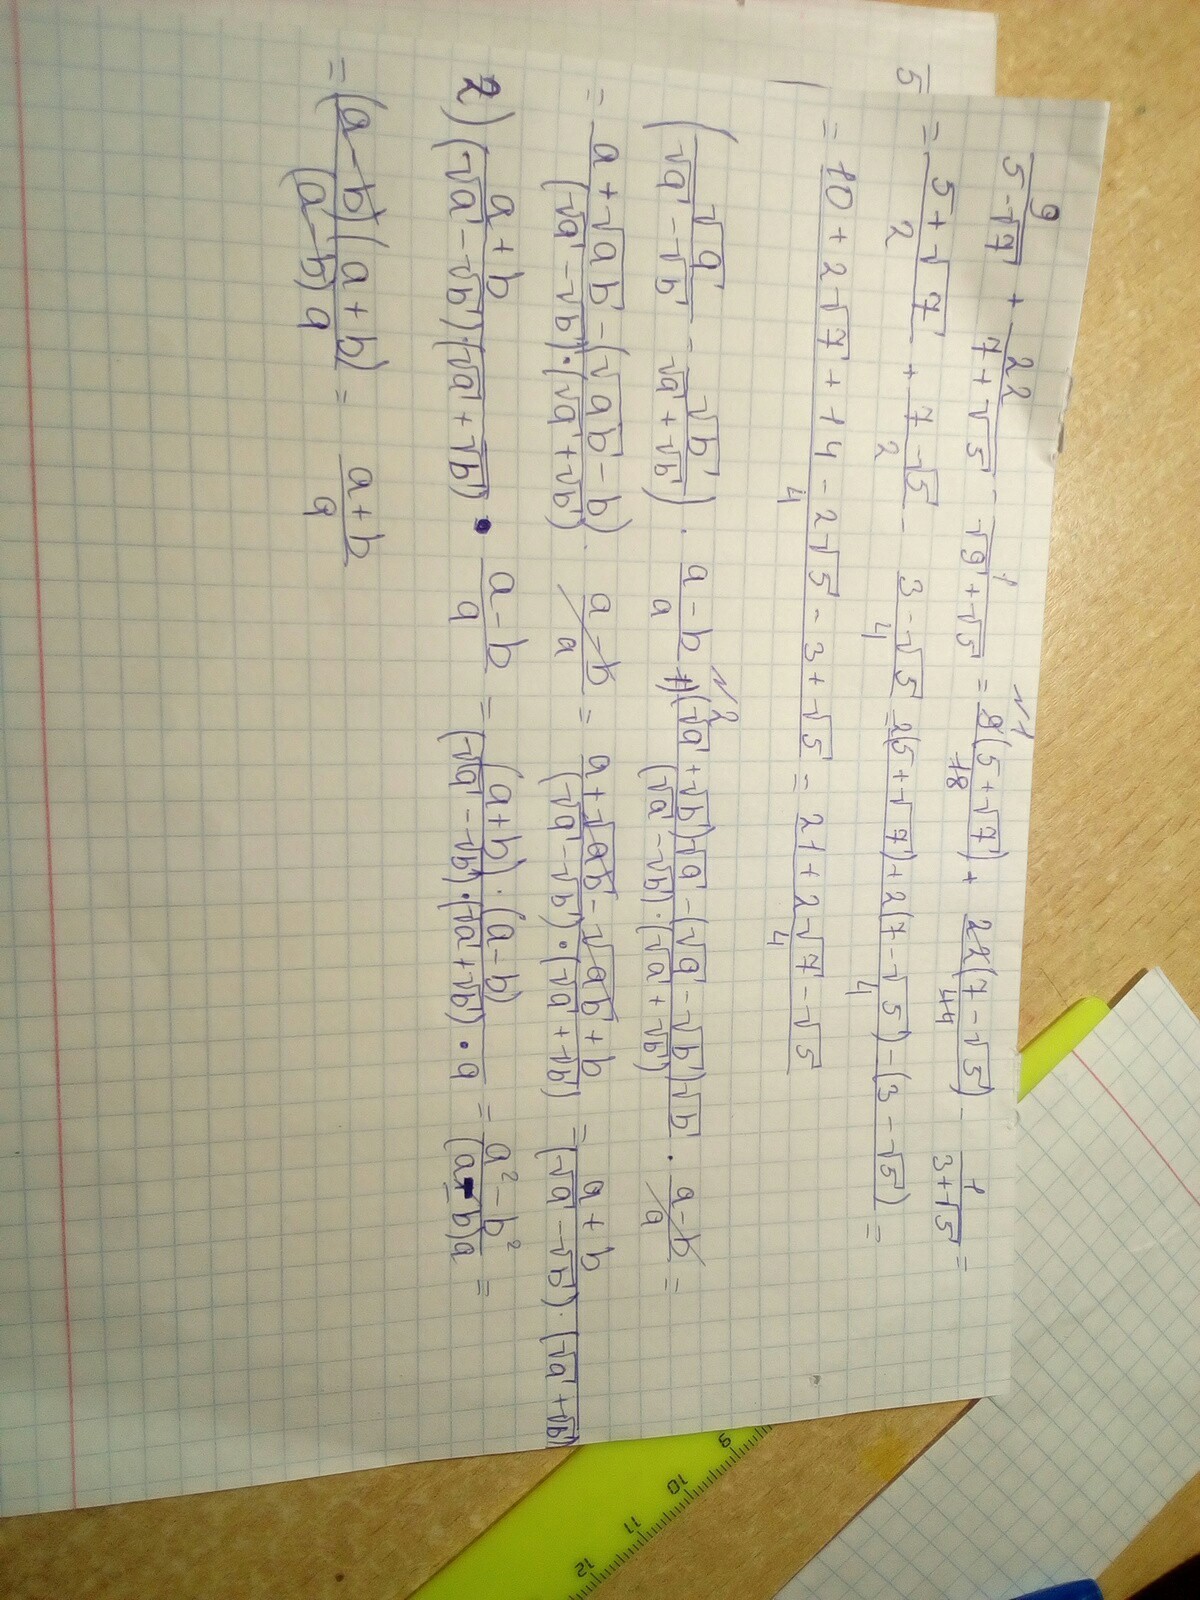 №1
9/(5-√7) + 22/(7+√5) - 1/(√9+√5) = 9(5+√7)/18 + 22(7-√5)/44 - 1/(3+√5) =
= (5+√7)/2 + (7-√5)/2 - (3-√5)/4 = (2(5+√7)+2(7-√5)-(3-√5))/4 =
= (10+2√7+14-2√5-3+√5)/4 = (21+2√7-√5)/4
№2
(√a/(√a-√b) - √b/(√a+√b)) · (a-b)/a 1) ((√a+√b)√a-(√a-√b)√b)/((√a-√b)·(√a+√b)) · (a-b)/a =
= (a+√ab-(√ab-b))/((√a-√b)·(√a+√b)) · (a-b)/a = (a+√ab-√ab+b)/((√a-√b)·(√a+√b)) = (a+b)/((√a-√b)·(√a+√b))
2) (a+b)/((√a-√b)·(√a+√b)) · (a-b)/a = ((a+b)·(a-b))/((√a-√b)·(√a+√b)·a) = (a²-b²)/((a-b)a) =
= ((a-b)(a+b))/((a-b)a) = (a+b)/a
9
10
11
12